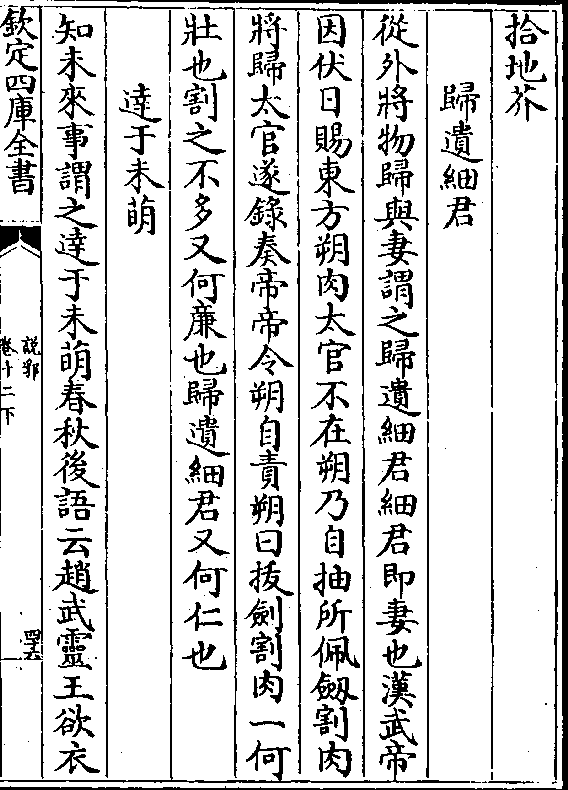 拾地芥
歸遺細君
從外將物歸與妻謂之歸遺細君細君即妻也漢武帝
因伏日賜東方朔肉太官不在朔乃自抽所佩劔割肉
將歸太官遂錄奏帝帝令朔自責朔曰拔劍割肉一何
壯也割之不多又何廉也歸遺細君又何仁也
達于未萌
知未來事謂之達于未萌春秋後語云趙武靈王欲衣
欽定四庫全書
說郛
卷十二下
四六